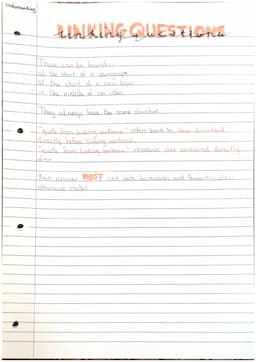 Understanding
LINKING QUESTIONS
linking questions
These can be found...
at the start of a paragraph
at the start of a new topic
in the middle of an idea
They always have the same structure
"quote from linking sentence" refers back to ideas
directly before linking sentence.
"quote from linking sentence" introduces ideas directly
after
Your answer MOST link both backwards and forwards, unless
otherwise stated